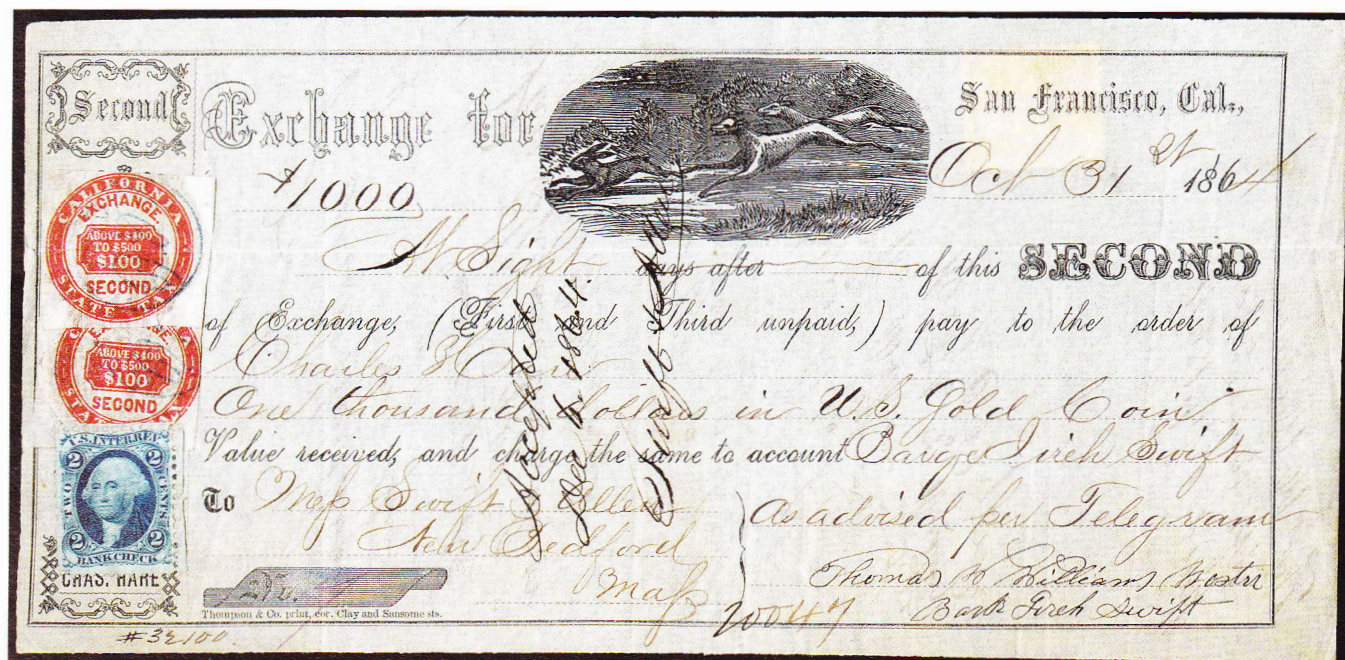 Second
Exchange for
San Francisco, Cal.,
$1000
Oct 31st 1864
At Sight days after of this SECOND
of Exchange, (First and Third unpaid,) pay to the order of
Charles Hare
One thousand Dollars in U.S. Gold Coin
Value received, and charge the same to account Barque Jireh Swift
To Mess Swift & Allen
As advised per Telegram
New Bedford
Mass
Thomas W Williams Master
Bark Jireh Swift
No.
Thompson & Co. print, cor. Clay and Sansome sts.
20047
#32,100
Accepted
1864.
Swift & Allen
CALIFORNIA
EXCHANGE.
ABOVE $400
TO $500
$1.00
SECOND
STATE
ABOVE $400
TO $500
$1.00
SECOND
U.S. INTER REV
2 2
TWO CENTS
2 2
BANK CHECK
CHAS. HARE